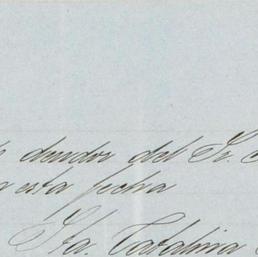 deudor del Sr.
esta fecha
Sta. Catalina